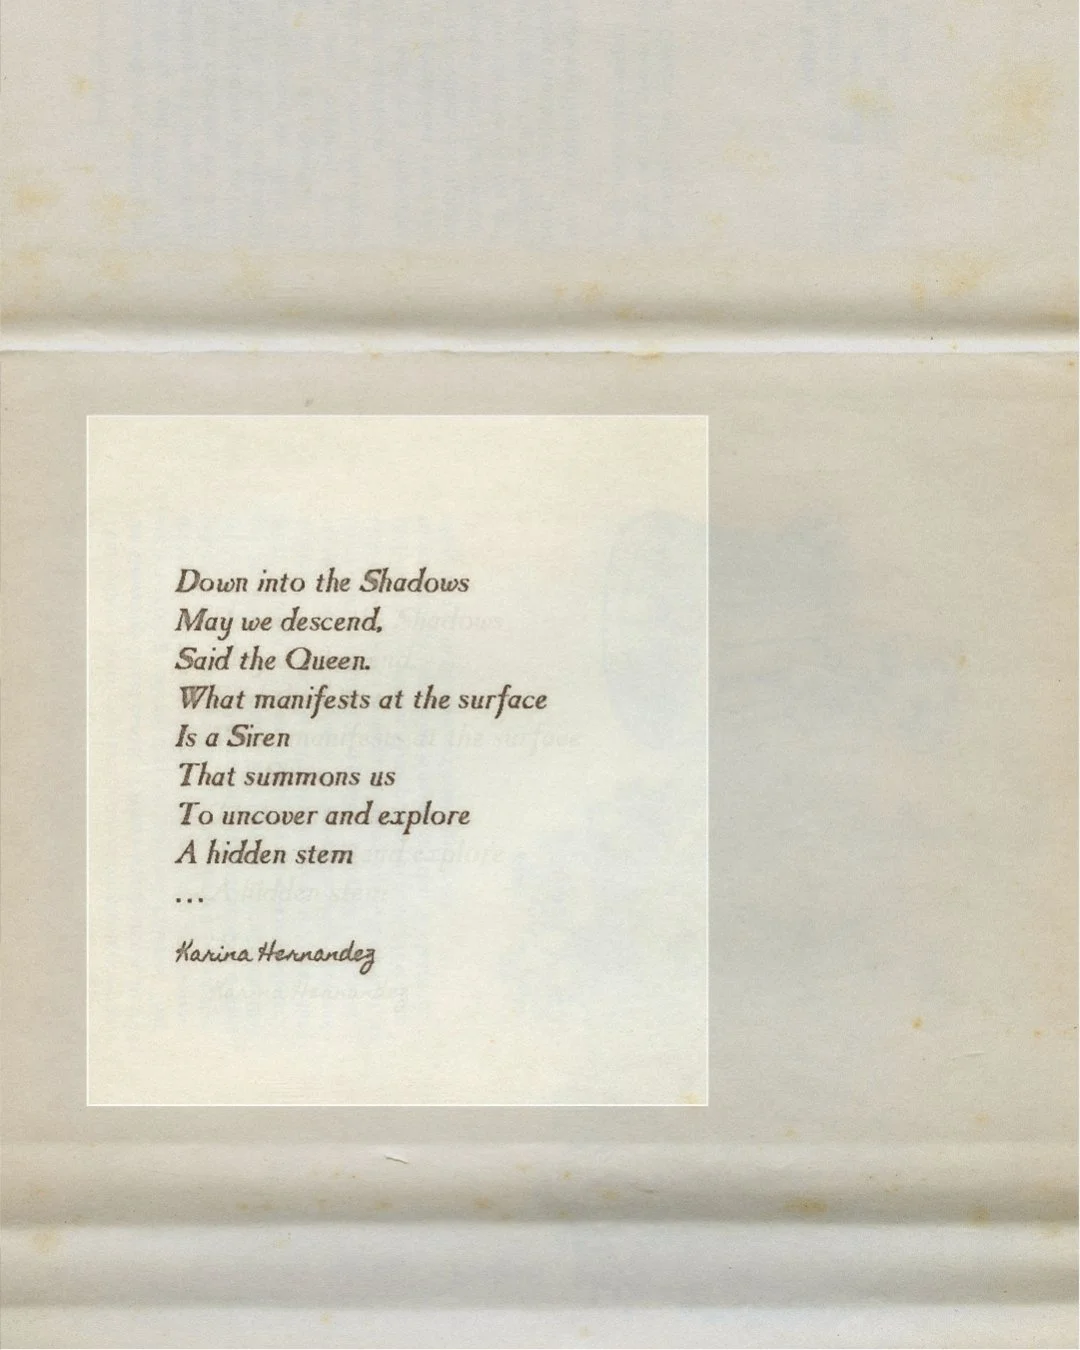 Down into the Shadows
May we descend,
Said the Queen.
What manifests at the surface
Is a Siren
That summons us
To uncover and explore
A hidden stem
...
Karina Hernandez